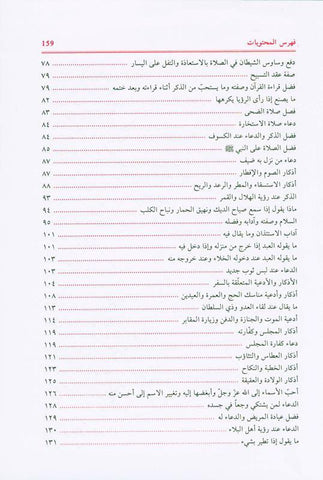 فهرس المحتويات 159
دفع وساوس الشيطان في الصلاة بالاستعاذة والتفل على اليسار ٧٨
صفة عقد التسبيح ٧٩
فضل قراءة القرآن وصفته وما يستحبّ من الذكر أثناء قراءته وبعد ختمه ٧٩
ما يصنع إذا رأى الرؤيا يكرهها ٨٢
فضل صلاة الضحى ٨٣
دعاء صلاة الاستخارة ٨٤
فضل الذكر والدعاء عند الكسوف ٨٤
فضل الصلاة على النبي ﷺ ٨٥
دعاء من نزل به ضيف ٨٧
أذكار الصوم والإفطار ٨٧
أذكار الاستسقاء والمطر والرعد والريح ٨٨
الذكر عند رؤية الهلال والقمر ٩٣
ماذا يقول إذا سمع صياح الديك ونهيق الحمار ونباح الكلب ٩٤
السلام وصفته وآدابه وفضله ٩٥
آداب الاستئذان وما يقال فيه ١٠١
ما يقوله العبد إذا خرج من منزله وإذا دخل فيه ١٠١
ما يقوله العبد عند دخوله الخلاء وعند خروجه منه ١٠٣
الدعاء عند لبس ثوب جديد ١٠٣
الأذكار والأدعية المتعلّقة بالسفر ١٠٤
أذكار وأدعية مناسك الحج والعمرة والعيدين ١٠٨
ما يقال عند لقاء العدو وذي السلطان ١١٣
أدعية الموت والجنازة والدفن وزيارة المقابر ١١٤
أذكار المجلس وكفّارته ١١٩
دعاء كفارة المجلس ١١٩
أذكار العطاس والتثاؤب ١٢١
أذكار الخطبة والنكاح ١٢٣
أذكار الولادة والعقيقة ١٢٥
أحبّ الأسماء إلى الله عزّ وجلّ وأبغضها إليه وتغيير الاسم إلى أحسن منه ١٢٦
الدعاء لمن يشتكي وجعاً في جسده ١٢٨
فضل عيادة المريض والدعاء له ١٢٨
الدعاء عند رؤية أهل البلاء ١٣٠
ما يقول إذا تطير بشيء ١٣١